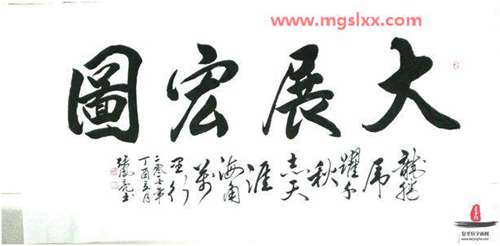 www.mgslxx.com
大展宏圖
龍騰
虎
躍千
秋
志天
涯
海角
萬
里行
丁酉五月